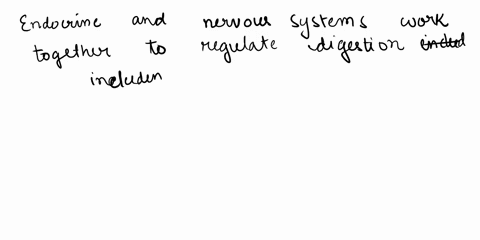 Endocrine and nervous systems work
together to regulate digestion
includen